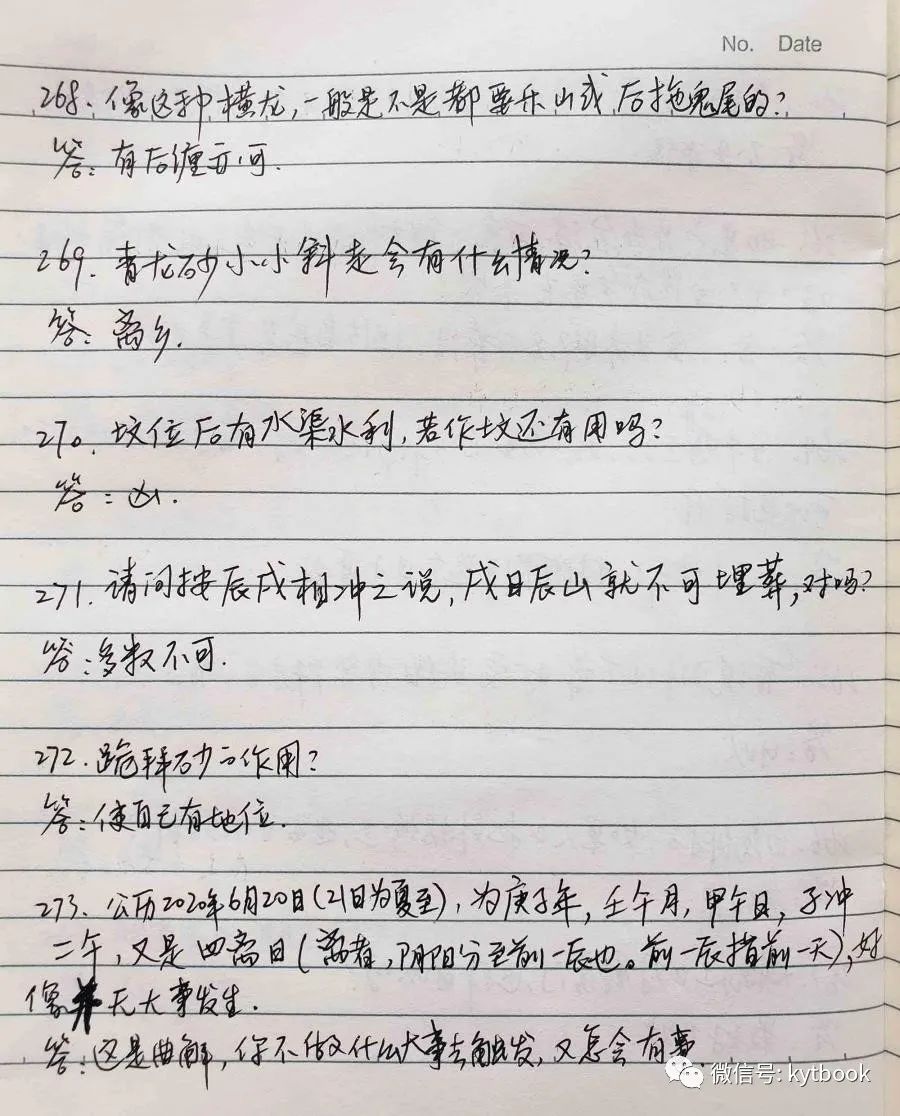 No. Date
268. 像这种横龙,一般是不是都要乐山或后拖鬼尾的?
答:有后缠亦可.
269. 青龙砂小小斜走会有什么情况?
答:离乡.
270. 坟位后有水渠水利,若作坟还有用吗?
答:凶.
271. 请问按辰戌相冲之说,戌日辰山就不可埋葬,对吗?
答:多数不可.
272. 跪拜砂的作用?
答:使自己有地位.
273. 公历2020年6月20日(21日为夏至),为庚子年,壬午月,甲午日,子冲
二午,又是四离日(离者,阴阳分至前一辰也。前一辰指前一天),好
像并无大事发生.
答:这是曲解,你不做什么大事去触发,又怎会有事.
微信号: kytbook